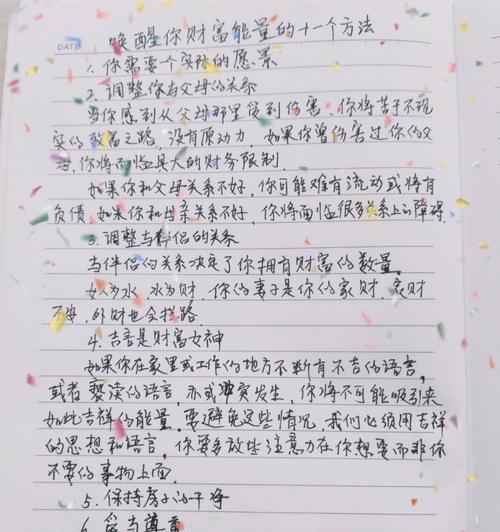 唤醒你财富能量的十一个方法
DATE
1. 你需要个实际的愿景
2. 调整你与父母的关系
当你感到从父母那里受到伤害、你将苦于不现
实的致富之路，没有原动力，如果你曾伤害过你的父
母，你将面临具大的财务限制.
如果你和父母关系不好，你可能难有流动或将有
负债，如果你和母亲关系不好，你将面临很多关系上的障碍.
3. 调整与伴侣的关系
与伴侣的关系决定了你拥有财富的数量。
女人为水，水为财，你的妻子是你的家财，家财
不安，外财也会找路
4. 吉言是财富女神
如果你在家里或工作的地方不断有不吉的语言，
或者亵渎的语言，亦或冲突发生，你将不可能吸引来
如此吉祥的能量. 要避免这些情况，我们必须用吉祥
的思想和语言，你要多放些注意力在你想要而非你
不要的事物上面.
5. 保持房子的干净
6. 受当尊重